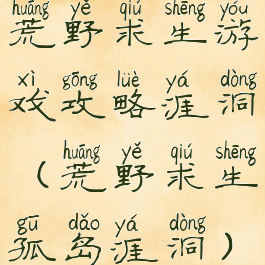 huāng yě qiú shēng yóu
荒野求生游
xì gōng lüè yá dòng
戏攻略涯洞
huāng yě qiú shēng
（荒野求生
gū dǎo yá dòng
孤岛涯洞）